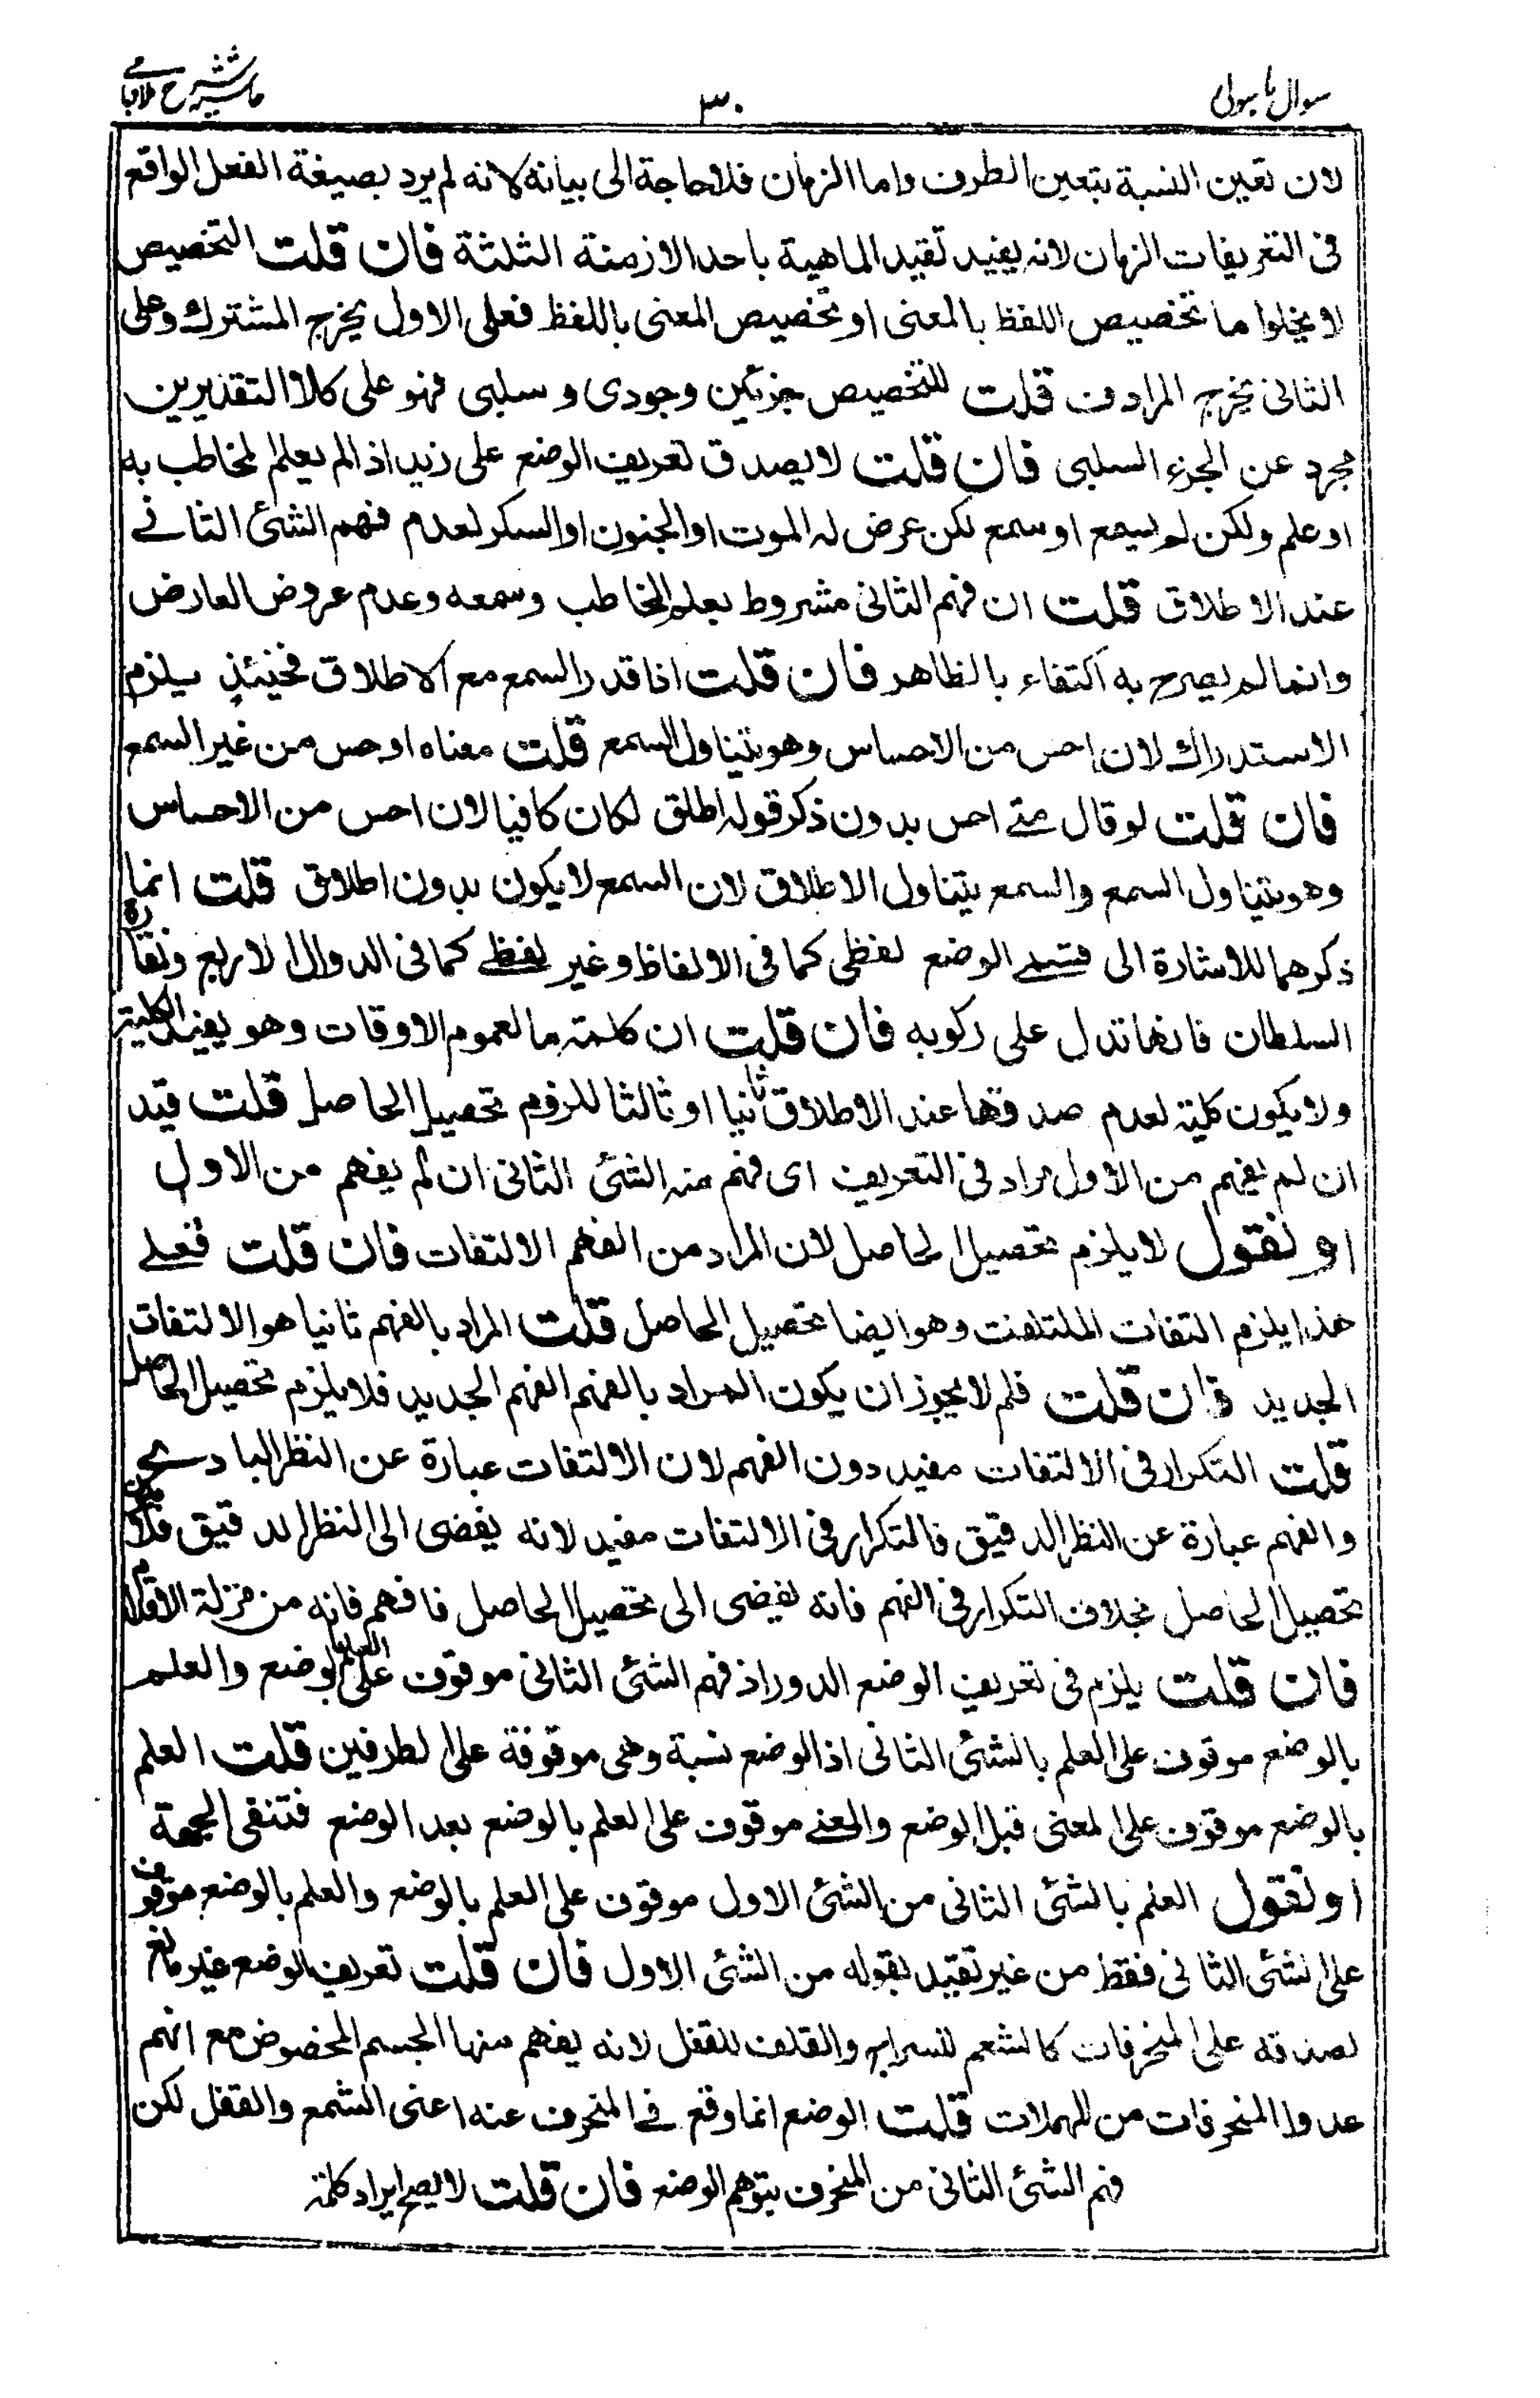 سوال باسولی
۳۰
حاشیہ شرح ملا جامی
لان تعين النسبة بتعين الطرف واما الزمان فلا حاجة الى بيانه لانه لم يرد بصيغة الفعل الواقع
فى التعريفات الزمان لانه يفيد تقيد الماهية باحد الازمنة الثلثة فان قلت التخصيص
لا يخلوا ما تخصيص اللفظ بالمعنى او تخصيص المعنى باللفظ فعلى الاول يخرج المشترك وعلى
الثانى يخرج المرادف قلت للتخصيص جزئين وجودى و سلبى فهو على كلا التقديرين
مجرد عن الجزء السلبى فان قلت لا يصدق تعريف الوضع على زيد اذا لم يعلم المخاطب به
او علم ولكن لم يسمع او سمع لكن عرض له الموت او الجنون او السكر لعدم فهم الشئ الثانے
عند الاطلاق قلت ان فهم الثانى مشروط بعلم المخاطب وسمعه وعدم عروض العارض
وانما لم يصرح به اكتفاء بالظاهر فان قلت اذا قدر السمع مع الاطلاق فحينئذ يلزم
الاستدراك لان احس من الاحساس وهو يتناول السمع قلت معناه او حس من غير السمع
فان قلت لو قال متے احس بدون ذكر قوله اطلق لكان كافيا لان احس من الاحساس
وهو يتناول السمع والسمع يتناول الاطلاق لان السمع لا يكون بدون اطلاق قلت انما
ذكرهما للاشارة الى قسمے الوضع لفظى كما فى الالفاظ وغير لفظے كما فى الدوال الاربع ونقارة
السلطان فانها تدل على ركوبه فان قلت ان كلمة ما لعموم الاوقات وهو يفيد الكلية
ولا يكون كلية لعدم صدقها عند الاطلاق ثانيا او ثالثا للزوم تحصيل الحاصل قلت قيد
ان لم يفهم من الاول مراد فى التعريف اى فهم منه الشئ الثانى ان لم يفهم من الاول
او نقول لا يلزم تحصيل الحاصل لان المراد من الفهم الالتفات فان قلت فعلے
هذا يلزم التفات الملتفت وهو ايضا تحصيل الحاصل قلت المراد بالفهم ثانيا هو الالتفات
الجديد فان قلت فلم لا يجوز ان يكون المراد بالفهم الفهم الجديد فلا يلزم تحصيل الحاصل
قلت التكرار فى الالتفات مفيد دون الفهم لان الالتفات عبارة عن النظر البادى
والفهم عبارة عن النظر الدقيق فالتكرار فى الالتفات مفيد لانه يفضى الى النظر الدقيق فلا
تحصيل الحاصل بخلاف التكرار فى الفهم فانه يفضى الى تحصيل الحاصل فافهم فانه من مزلة الاقدام
فان قلت يلزم فى تعريف الوضع الدور اذ فهم الشئ الثانى موقوف على العلم بالوضع والعلم
بالوضع موقوف على العلم بالشئ الثانى اذ الوضع نسبة وهى موقوفة على الطرفين قلت العلم
بالوضع موقوف على المعنى قبل الوضع والمعنے موقوف على العلم بالوضع بعد الوضع فتنفى الجهة
او نقول العلم بالشئ الثانى من الشئ الاول موقوف على العلم بالوضع والعلم بالوضع موقوف
على الشئ الثانى فقط من غير تقيد بقوله من الشئ الاول فان قلت تعريف الوضع غير مانع
لصدقه على المنحرفات كالشعم للسراج والقلف للقفل لانه يفهم منها الجسم المخصوص مع انهم
عدوا المنحرفات من المهملات قلت الوضع انما وقع فے المنحرف عنه اعنى الشمع والقفل لكن
فهم الشئ الثانى من المنحرف بتوهم الوضع فان قلت لا يصح ايراد كلمة